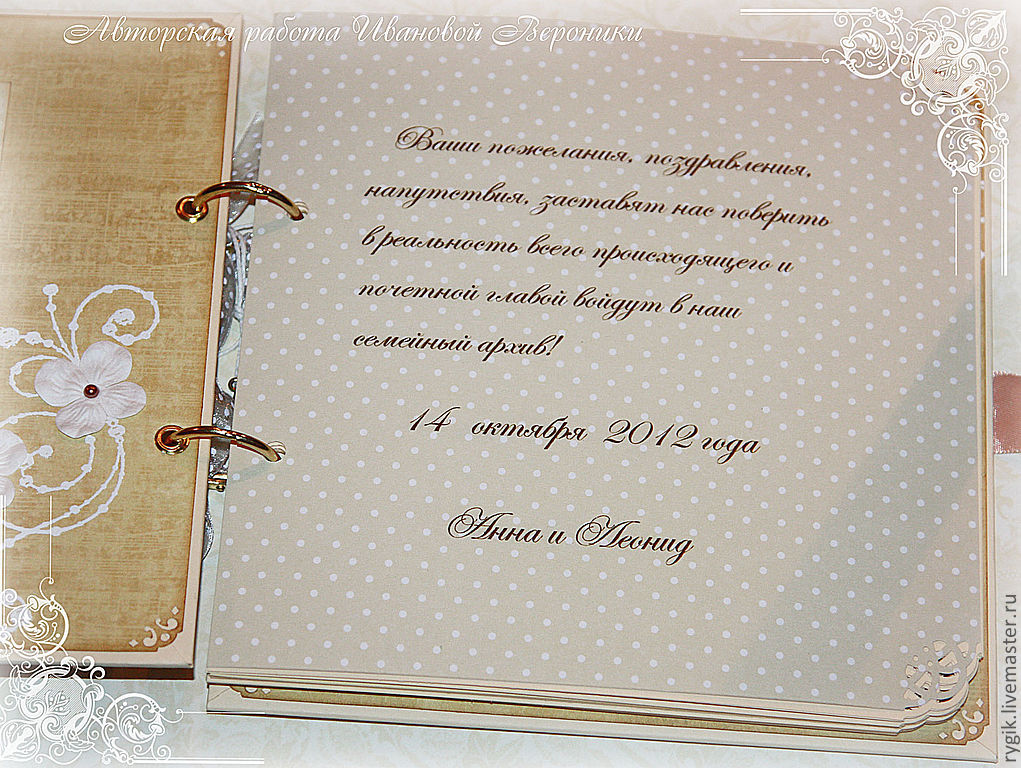 Авторская работа Ивановой Вероники
Ваши пожелания, поздравления,
напутствия, заставят нас поверить
в реальность всего происходящего и
почетной главой войдут в наш
семейный архив!
14 октября 2012 года
Анна и Леонид
rygik.livemaster.ru